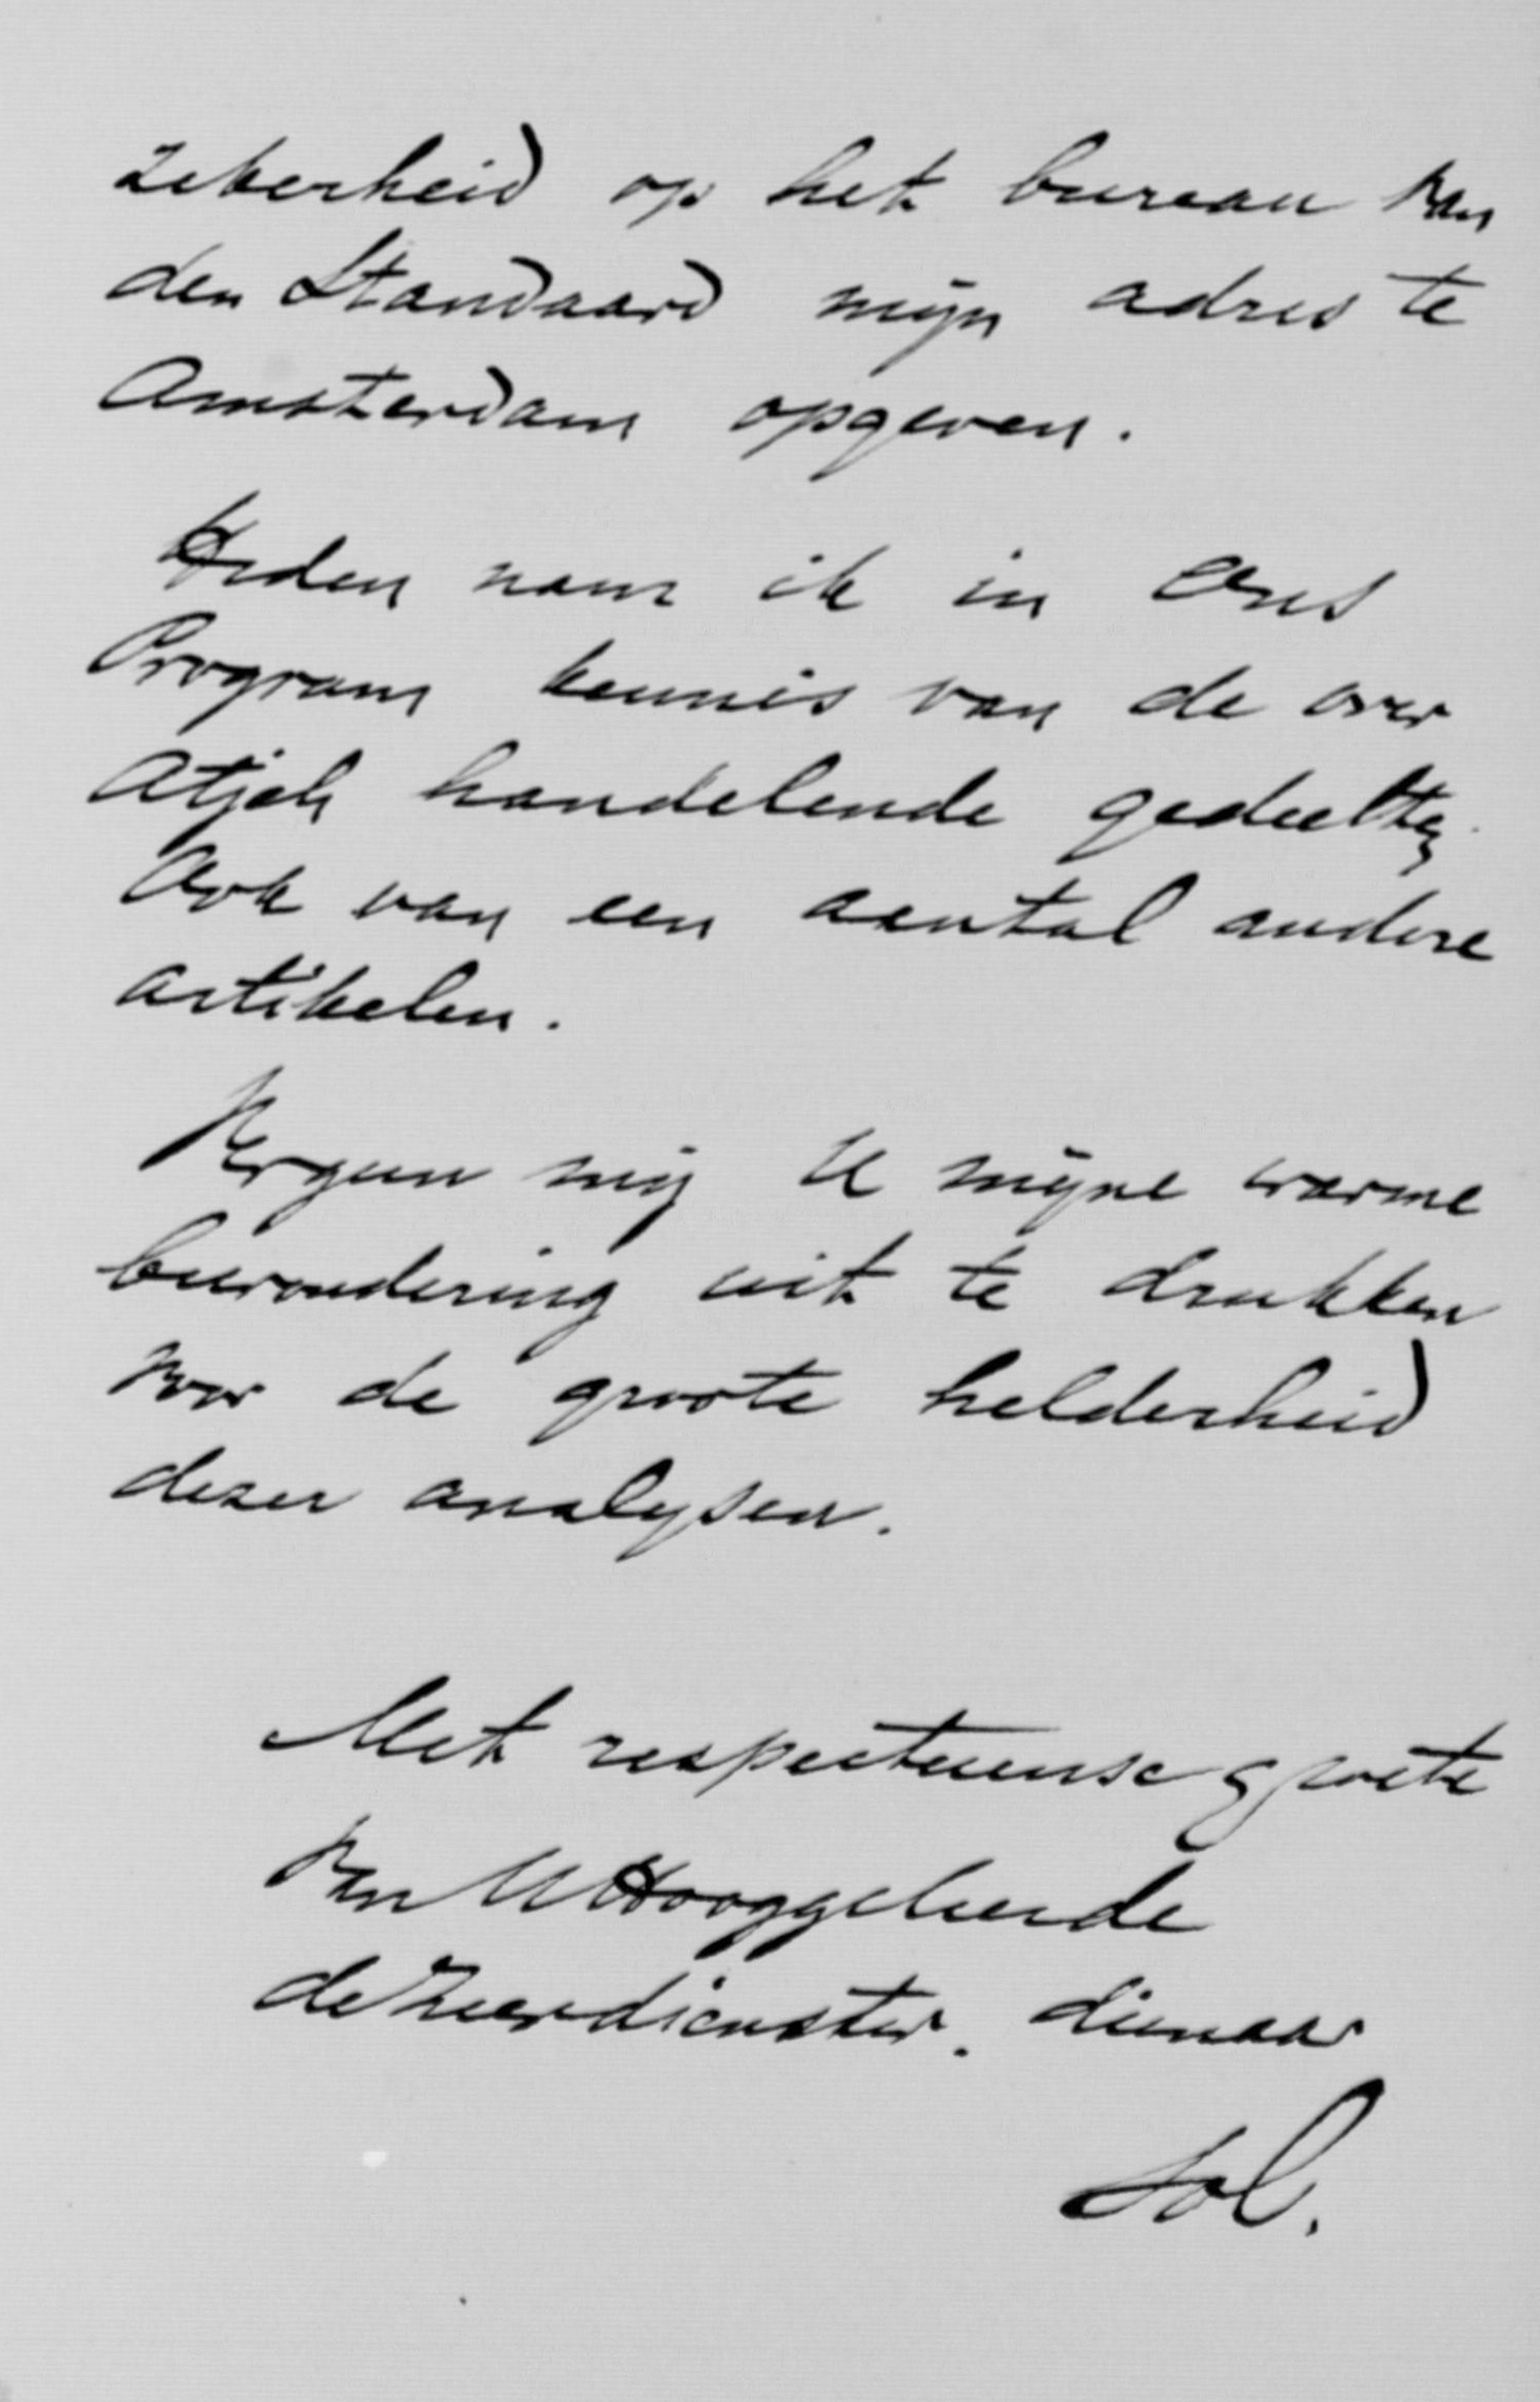 zekerheid op het bureau van
den Standaard mijn adres te
Amsterdam opgeven.
Heden nam ik in Ons
Program kennis van de over
Atjeh handelende gedeelten.
Ook van een aantal andere
artikelen.
Vergun mij U mijne warme
bewondering uit te drukken
voor de groote helderheid
dezer analysen.
Met respectueuse groete
van UHooggeleerde
de zeerdienstw. dienaar
Sol.